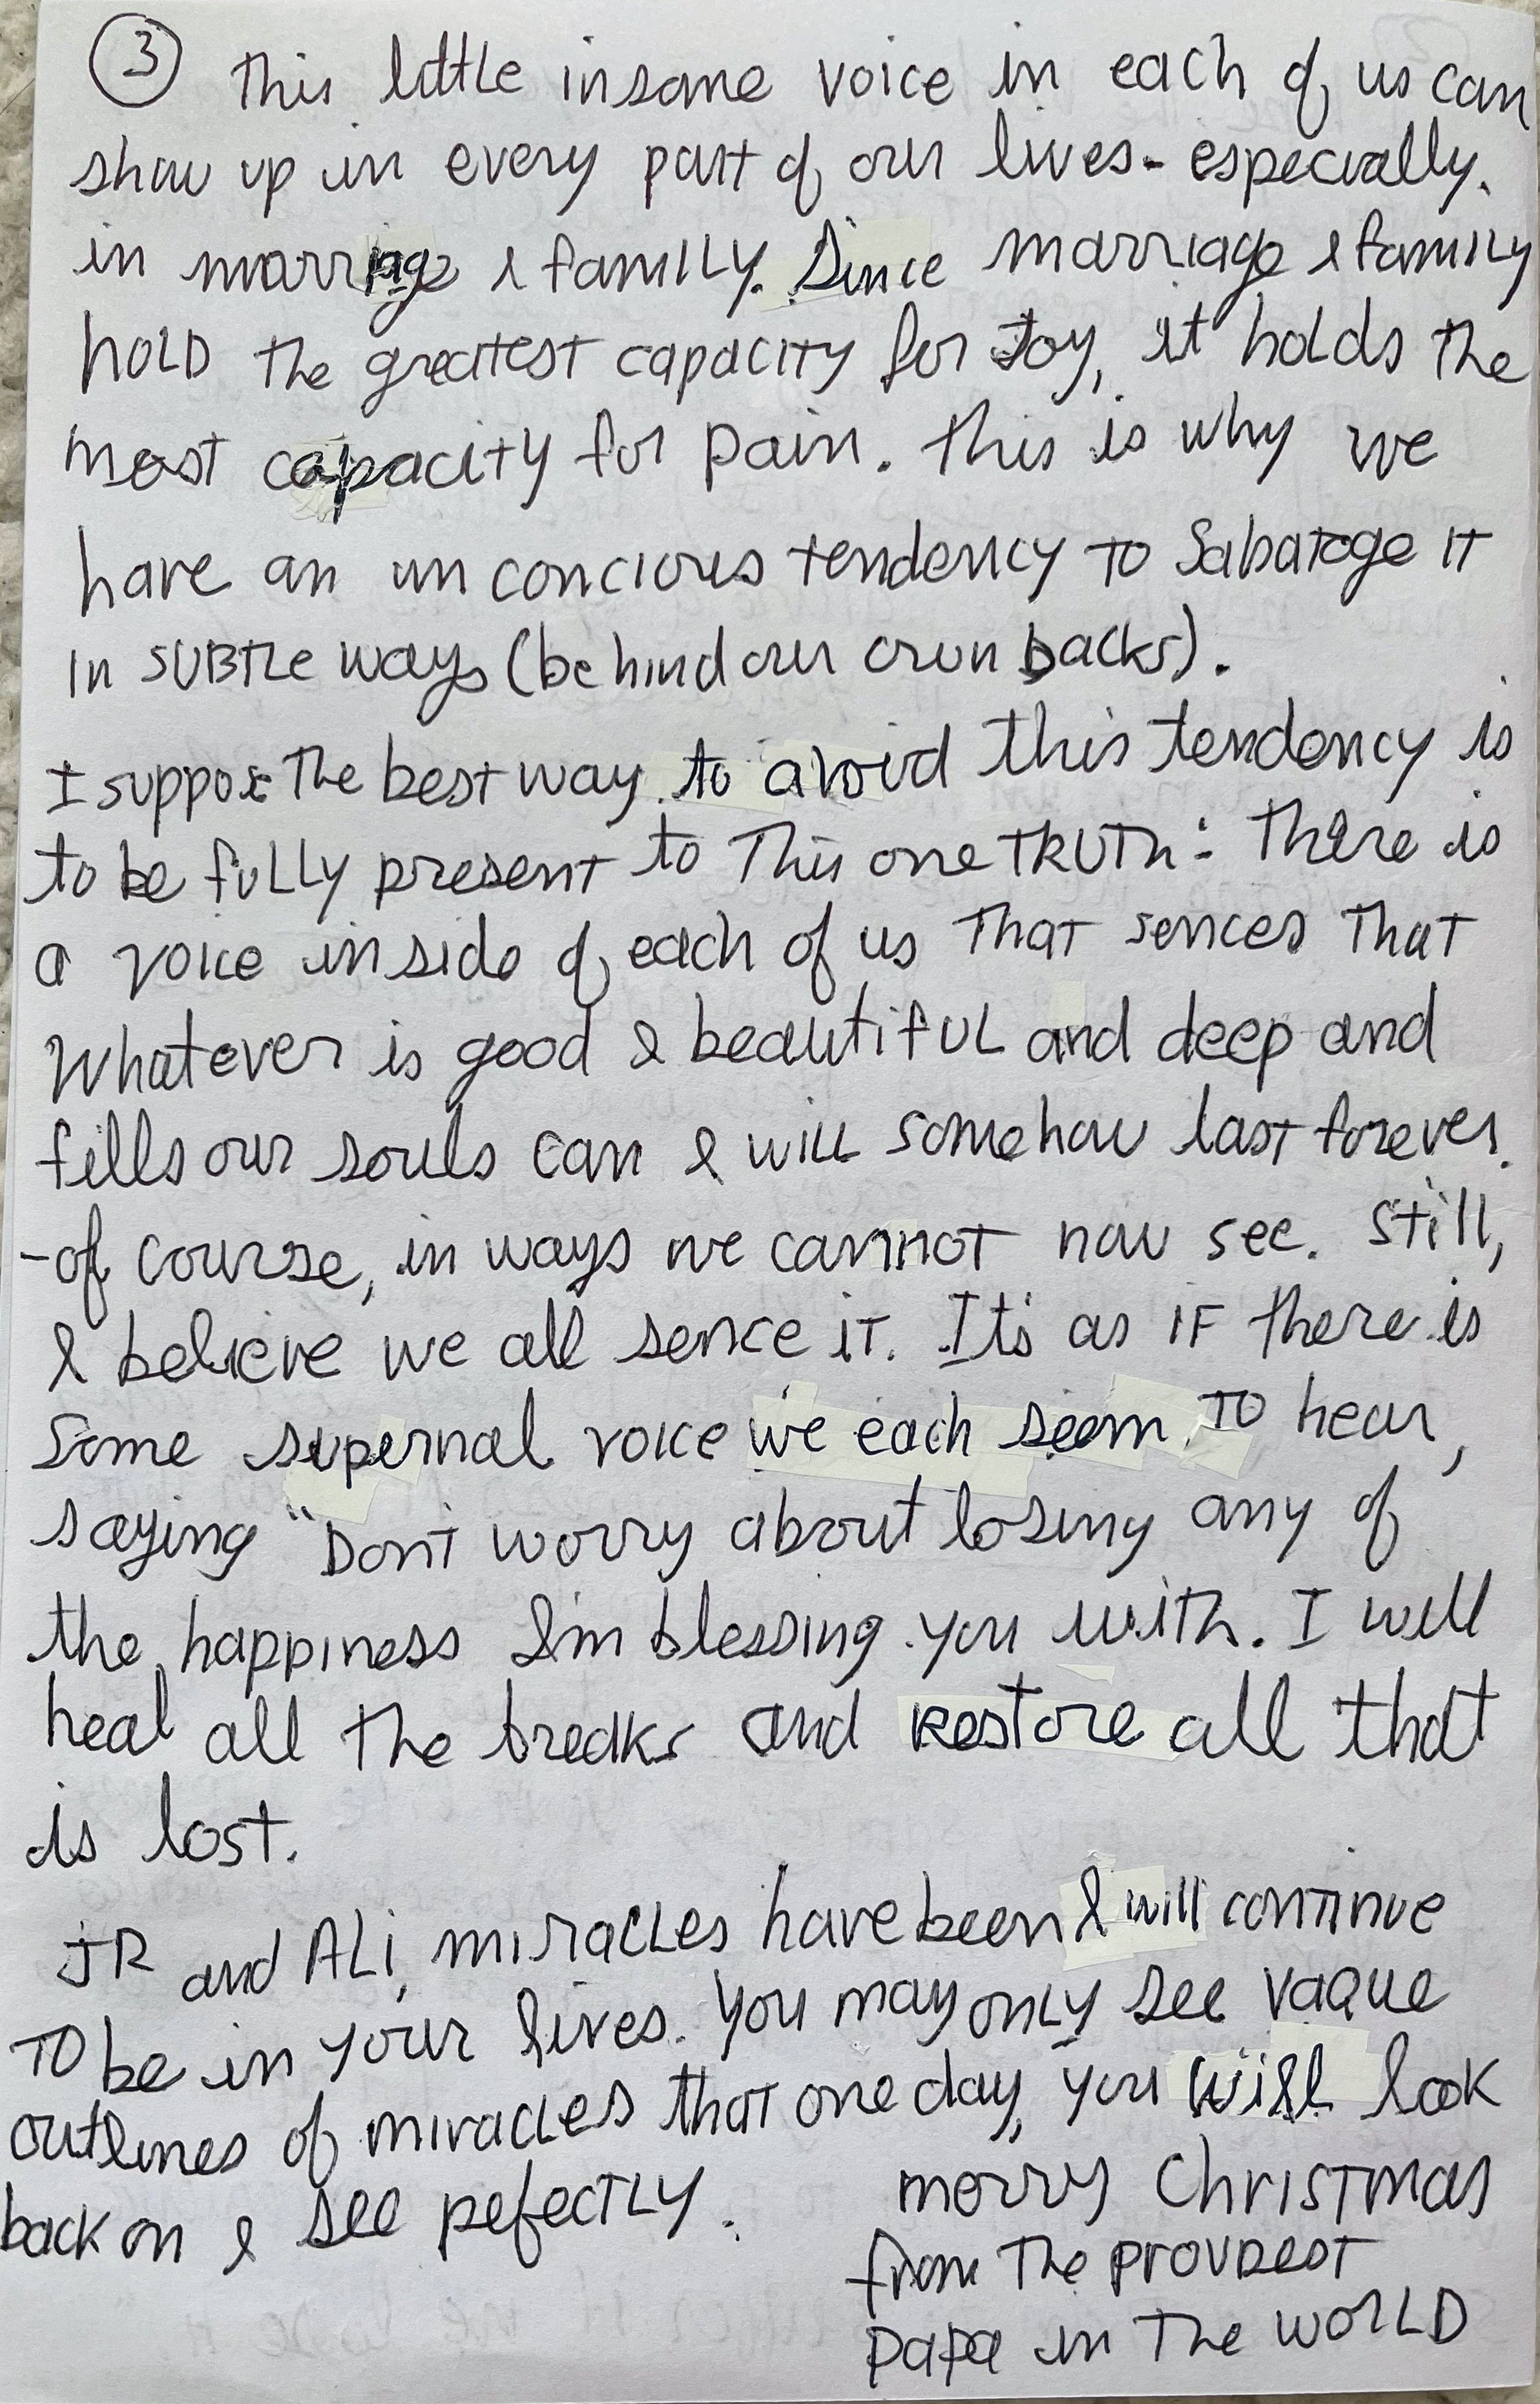 ③ This little insane voice in each of us can
show up in every part of our lives - especially.
in marriage & family. Since marriage & family
hold the greatest capacity for Joy, it holds the
most capacity for pain. This is why we
have an unconcious tendency to Sabatoge it
in subtle ways (behind our own backs).
I suppose the best way to avoid this tendency is
to be fully present to this one TRUTH: There is
a voice inside of each of us that sences that
Whatever is good & beautiful and deep and
fills our souls can & will somehow last forever.
- of course, in ways we cannot now see. Still,
I believe we all sence it. It's as if there is
Some supernal voice we each seem to hear,
saying "Don't worry about losing any of
the happiness I'm blessing you with. I will
heal all the breaks and restore all that
is lost.
JR and Ali, miracles have been & will continue
to be in your lives. You may only see vague
outlines of miracles that one day, you will look
back on & see pefectly.
merry Christmas
from The proudest
papa in The world